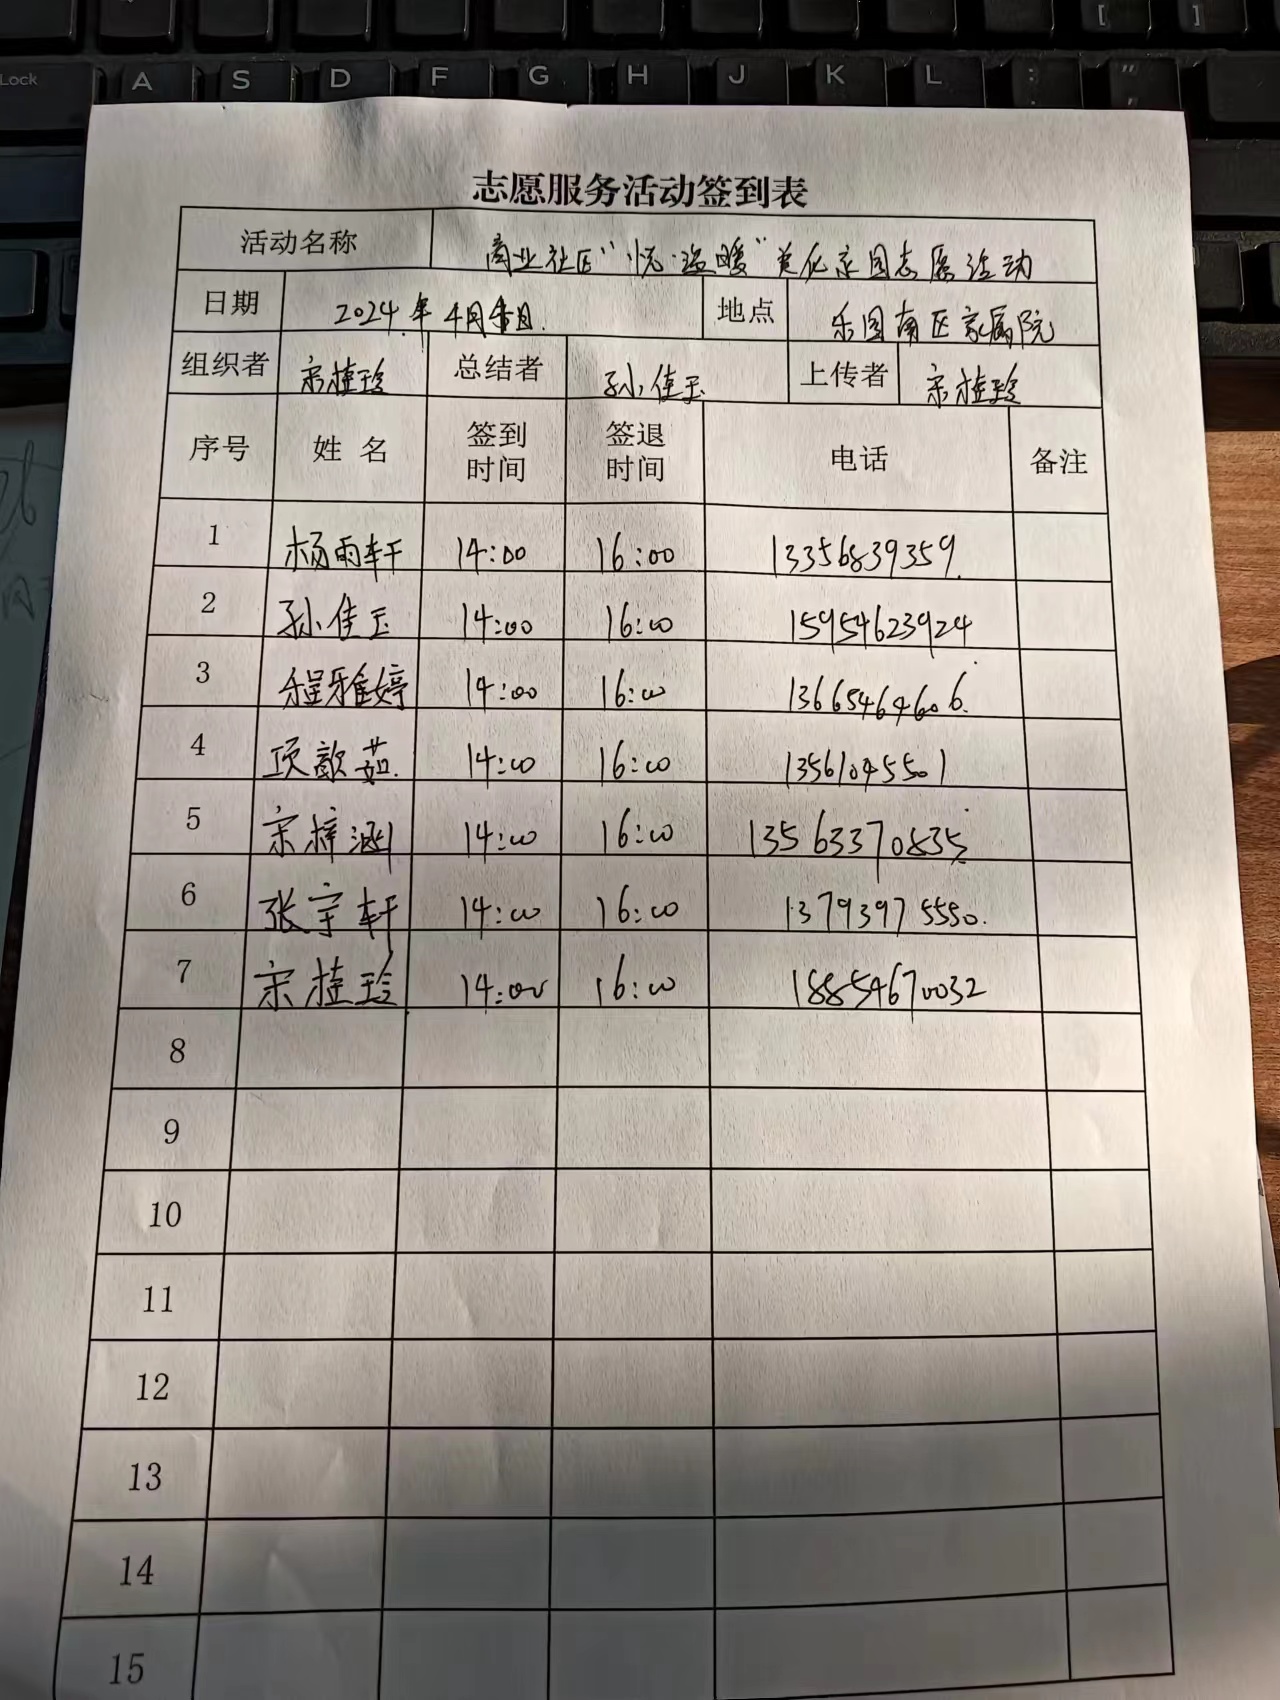 Lock A S D F G H J K L : "
[ ]
志愿服务活动签到表
活动名称 商业社区"悦·溢暖"美化家园志愿活动
日期 2024年4月 日 地点 乐园南区家属院
组织者 宋桂玲 总结者 孙佳玉 上传者 宋桂玲
序号 姓名 签到时间 签退时间 电话 备注
1 杨雨轩 14:00 16:00 13356839359
2 孙佳玉 14:00 16:00 15954623924
3 程雅婷 14:00 16:00 13665464606
4 项歆茹 14:00 16:00 13561045501
5 宋梓涵 14:00 16:00 13563370835
6 张宇轩 14:00 16:00 13793975550
7 宋桂玲 14:00 16:00 18854670032
8
9
10
11
12
13
14
15